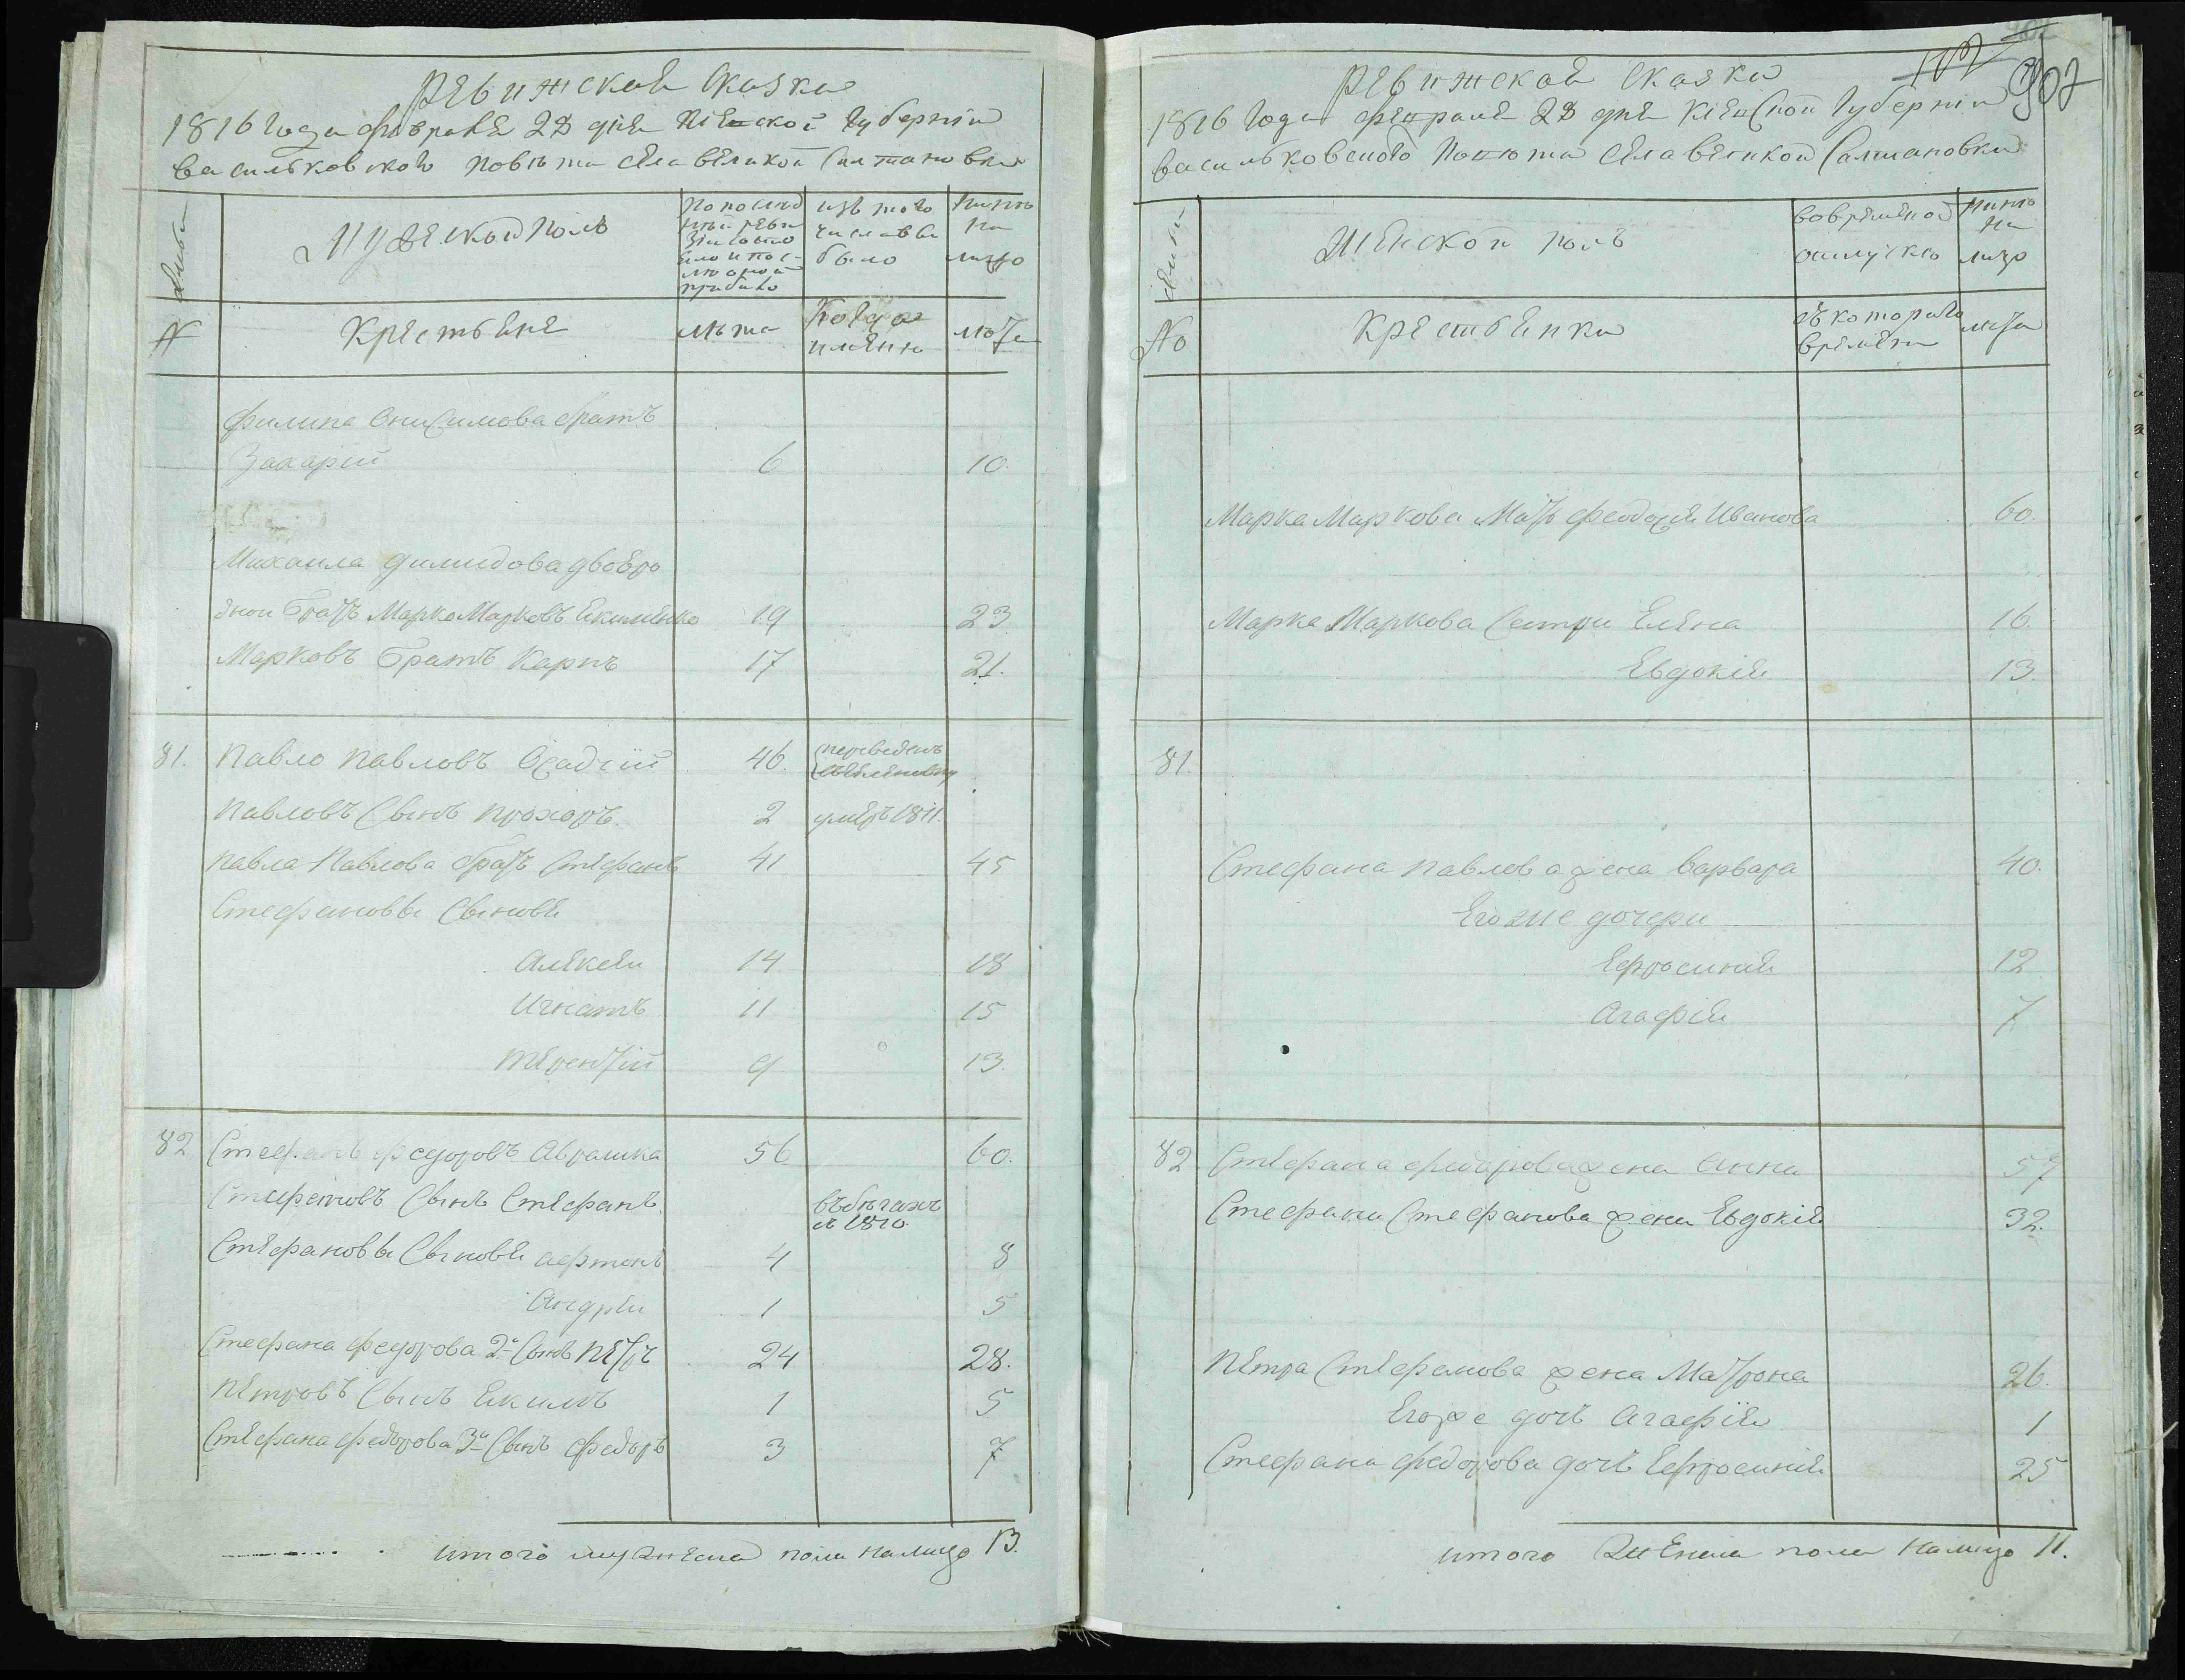 Ревижская Сказка
1816 Года февраля 28 дня Кіевской Губерніи
Васильковскаго Повѣта Села Великой Салтановки
Мужеской Полъ
По послѣд
ней реви
зіи состо
яло и пос
лѣ оной
прибыло
изъ того
числа вы
было
Ныне
на
лицо
№
Крестьяне
лѣта
Когда
именно
лѣта
Филипа Онисимова братъ
Захарій 6 10.
Михаила Димидова двоюро
дной братъ Марко Марковъ Екименко 19 23
Марковъ братъ Карпъ 17 21.
81. Павло Павловъ Осадчій 46. переведенъ
Павловъ Сынъ Прохоръ. 2 умеръ 1811.
Павла Павлова братъ Стефанъ 41 45
Стефановы Сыновя
Алексей 14 18
Игнатъ 11 15
Терентій 9 13.
82 Стефанъ Федоровъ Аврамка 56 60.
Стефановъ Сынъ Стефанъ въ бегахъ
с 1810.
Стефановы Сыновя Аефтенъ 4 8
Андрей 1 5
Стефана Федорова 2й Сынъ Петръ 24 28.
Петровъ Сынъ Екимъ 1 5
Стефана Федорова 3й Сынъ Федоръ 3 7
итого мужеска пола налицо 13.
Ревижская Сказка
907
1816 Года февраля 28 дня Кіевской Губерніи
Васильковского Повѣта Села Великой Салтановки
Женской Полъ
Во временной
отлучкѣ
Ныне
на
лицо
№
Крестьянки
съ которого
времени
лѣта
Марка Маркова Мать Феодосія Иванова 60.
Марка Маркова Сестри Елена 16.
Евдокія 13.
81.
Стефана Павлова жена Варвара 40.
Его же дочери
Ефросинія 12
Агафія 7
82 Стефана Федорова жена Анна 57
Стефана Стефанова жена Евдокія 32.
Петра Стефанова жена Матрона 26.
Его же дочь Агафія 1
Стефана Федорова дочь Ефросинія 25
итого Женска пола налицо 11.